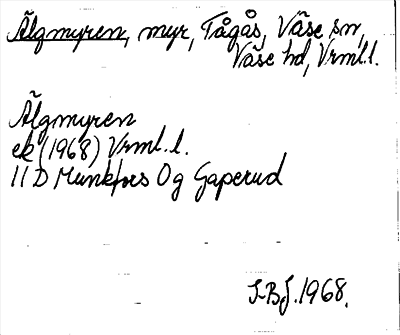 Älgmyren, myr, Tågås, Väse sn,
Väse hd, Vrml.l.
Älgmyren
ek (1968) Vrml.l.
11 D Munkfors Og Gaperud
1968.